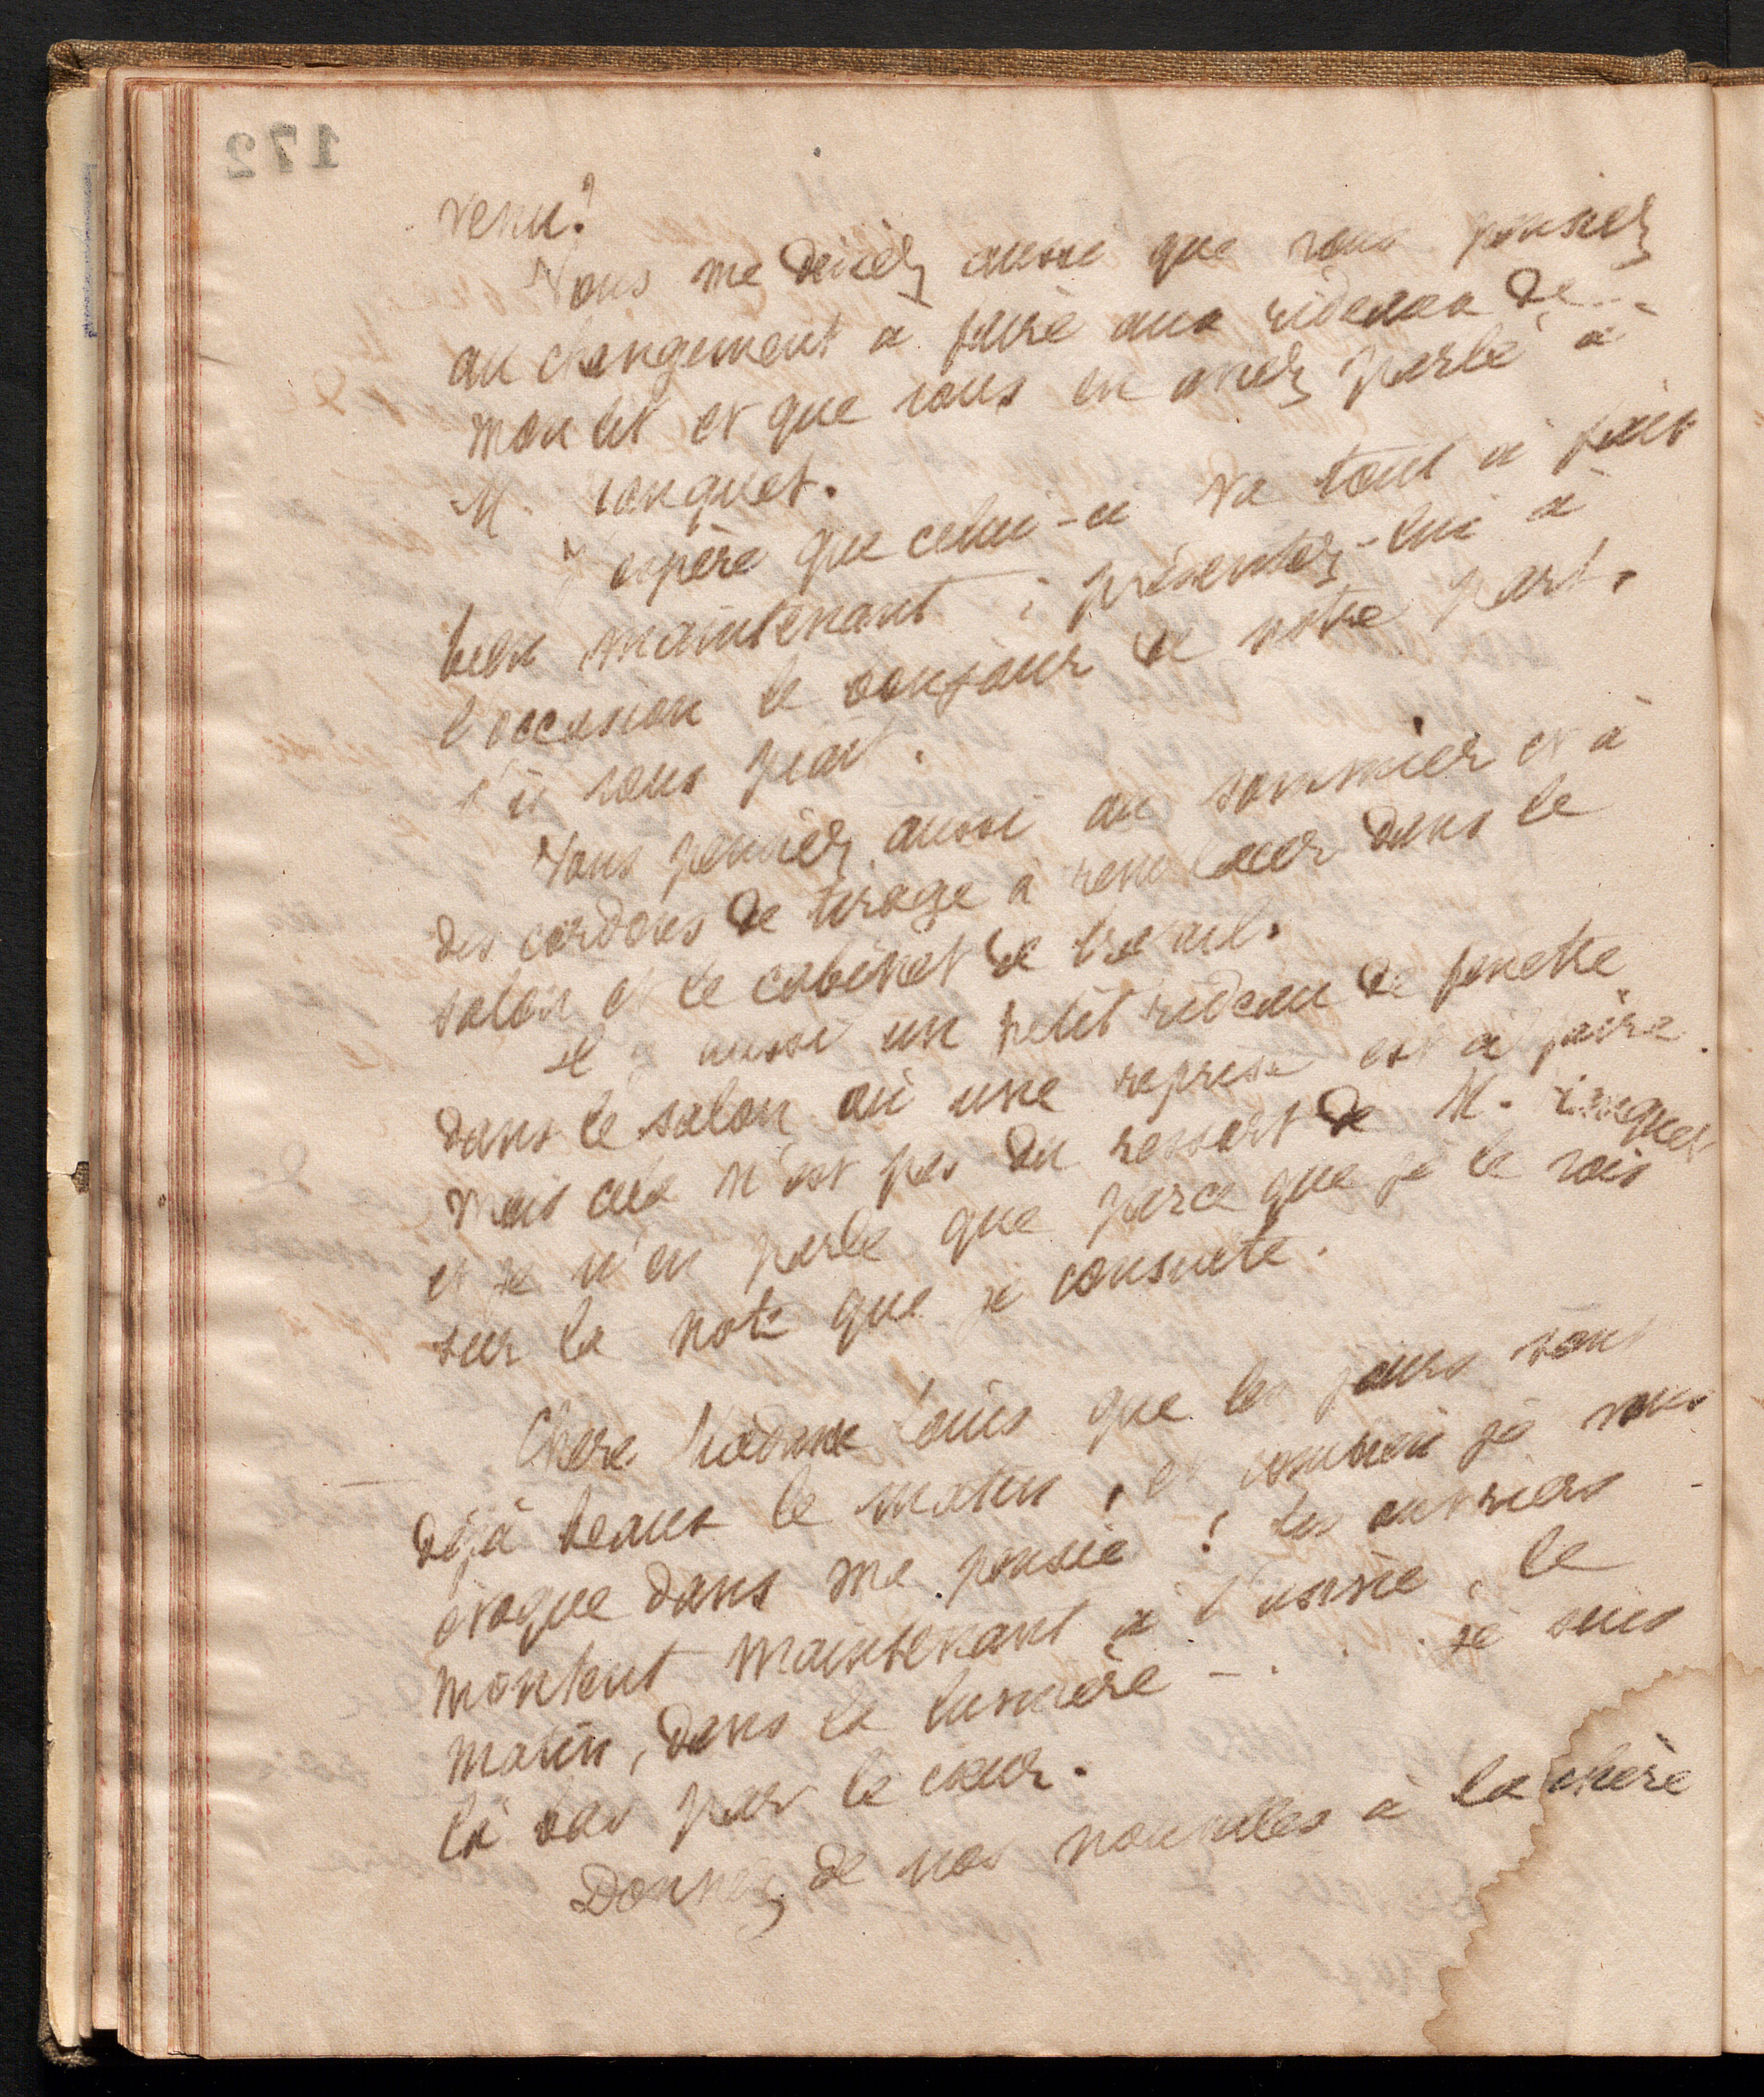 172
venu?
Vous me disiez aussi que vous pensiez
au changement à faire aux rideaux de
mon lit et que vous en aviez parlé à
M.
J'espère que celui-ci va tout à fait
bien maintenant ; présentez-lui à
l'occasion le bonjour de notre part,
s'il vous plait.
Vous pensiez aussi au sommier et à
des cordons de tirage à remplacer dans le
salon et le cabinet de travail.
Il y a aussi un petit rideau de fenetre
dans le salon où une reprise est à faire
mais cela n'est pas du ressort de M.
et je n'en parle que parce que je le vois
sur la note que je consulte.
Chere Madame Louis que les jours sont
déjà beaux le matin, et combien je vous
évoque dans ma pensée ! Les ouvriers
montent maintenant à l'usine, le
matin, dans la lumière - . . . je suis
là bas par le cœur.
Donnez de nos nouvelles à la chère